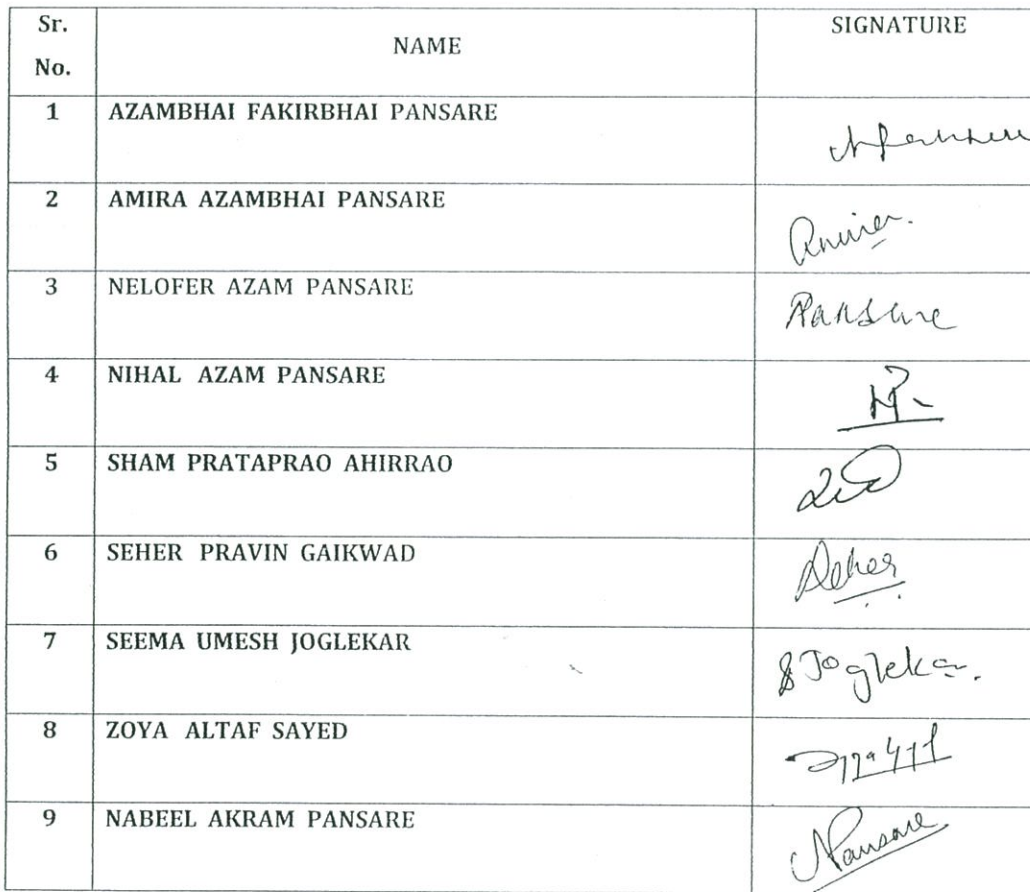 Sr. No. NAME SIGNATURE
1 AZAMBHAI FAKIRBHAI PANSARE
2 AMIRA AZAMBHAI PANSARE Amira.
3 NELOFER AZAM PANSARE Pansare
4 NIHAL AZAM PANSARE
5 SHAM PRATAPRAO AHIRRAO
6 SEHER PRAVIN GAIKWAD Seher
7 SEEMA UMESH JOGLEKAR SJoglekar.
8 ZOYA ALTAF SAYED
9 NABEEL AKRAM PANSARE NPansare